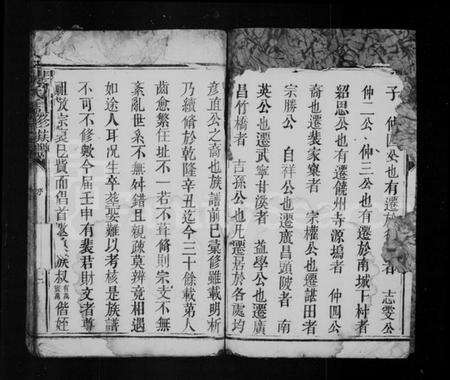 子 仲四公也有遷於 者 志雯公
仲二公仲三公也有遷於南城下村者
紹恩公也有遷饒州寺源塢者 仲囬公
裔也遷裴家寨者 宗權公也遷諶田者
宗勝公 自祥公也遷廣昌頭陂者 南
英公也遷武寧甘溪者 益學公也遷廣
昌竹橋者 吉孫公也凡遷居於各處均
彥直公之裔也族譜前已彙修雖載明晰
乃續脩於乾隆辛丑迄今三十餘載第人
齒愈繁住址不一若不再脩則宗支不無
紊亂世系不無舛錯且親疎莫辨竟相遇
如途人耳况生卒塟娶難以考核是族譜
不可不修歟今届壬申有裴君財文者尊
祖敬宗吳巳貲而倡首 族叔有萬 偕姪